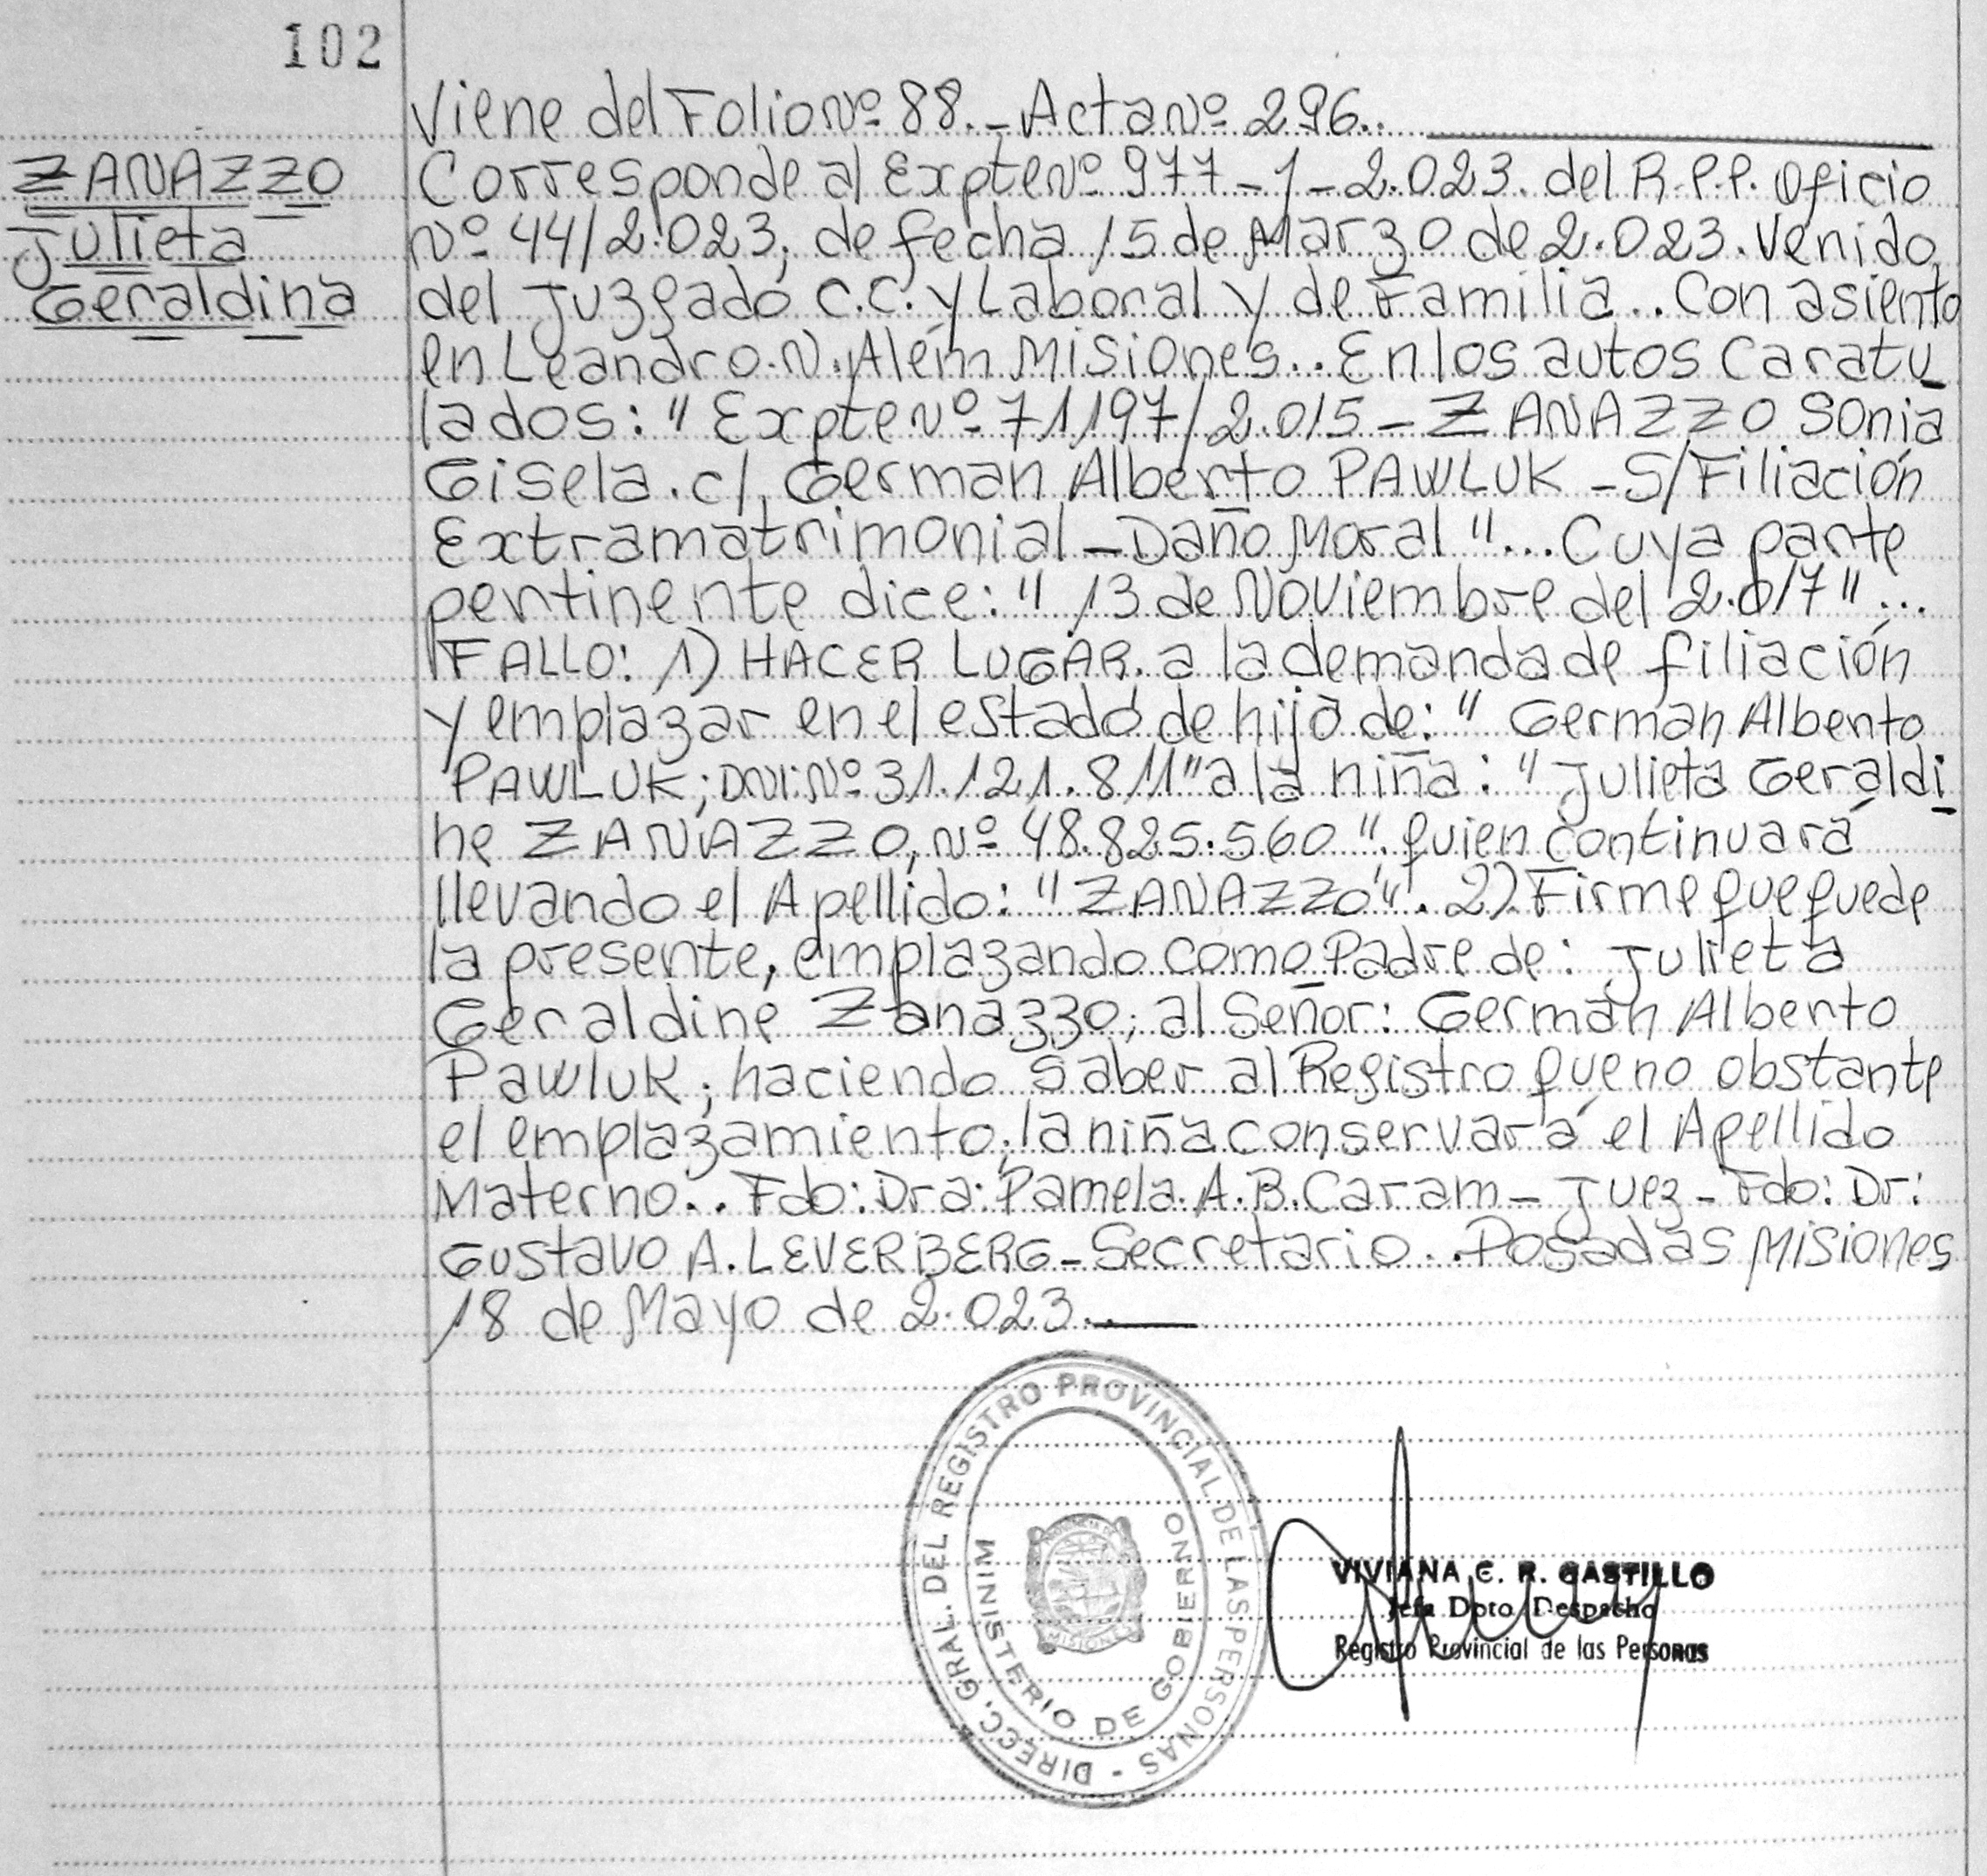 102
Viene del Folio Nº 88.- Acta Nº 296..
ZANAZZO
Julieta
Geraldina
Corresponde al Expte Nº 977-1-2.023. del R.P.P. Oficio
Nº 44/2.023, de fecha 15 de Marzo de 2.023. Venido,
del Juzgado C.C. y Laboral y de Familia.. Con asiento
en Leandro. N. Além Misiones.. En los autos Caratu_
lados: "Expte Nº 71197/2.015 - ZANAZZO Sonia
Gisela. c/. German Alberto PAWLUK - S/Filiación
Extramatrimonial - Daño Moral"... Cuya parte
pertinente dice: "13 de Noviembre del 2.017"...
FALLO: 1) HACER LUGAR. a la demanda de filiación
y emplazar en el estado de hijo de: "German Alberto
PAWLUK; DNI: Nº 31.121.811" a la niña: "Julieta Geraldi_
ne ZANAZZO, Nº 48.825.560". quien continuará
llevando el Apellido: "ZANAZZO". 2) Firme que quede
la presente, emplazando como Padre de: Julieta
Geraldine Zanazzo, al Señor: German Alberto
Pawluk; haciendo saber al Registro que no obstante
el emplazamiento; la niña conservará el Apellido
Materno.. Fdo: Dra: Pamela. A. B. Caram - Juez - Fdo: Dr:
Gustavo A. LEVERBERG - Secretario.. Posadas Misiones
18 de Mayo de 2.023..
DIRECC. GRAL. DEL REGISTRO PROVINCIAL DE LAS PERSONAS -
MINISTERIO DE GOBIERNO
PROVINCIA DE
MISIONES
VIVIANA C. R. CASTILLO
Jefa Dpto. Despacho
Registro Provincial de las Personas